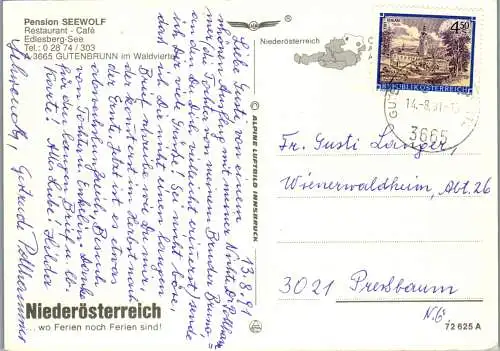 Pension SEEWOLF
Restaurant - Café
Edlesberg-See
Tel.: 0 28 74 / 303
A-3665 GUTENBRUNN im Waldviertel
13.8.91
Liebe Gusti, von einem
schönen Ausflug mit meiner Nichte
die Tochter von meinem Bruder Bruno,
an den Du Dich vielleicht erinnerst) sende
ich Dir viele Grüße! Sei nicht böse,
daß ich Dir nicht einen langen
Brief schreibe wie Du mir,
der kommt erst im Herbst nach
der Ernte, jetzt ist es etwas
abwechslungsreich, Besuch
von Tochter u. Enkelin. Danke
für den langen Brief u. lb.
Karte! Alles Liebe! Hilda
Gertrude
Niederösterreich
... wo Ferien noch Ferien sind!
© ALPINE LUFTBILD INNSBRUCK
Niederösterreich
4.50
REPUBLIK ÖSTERREICH
14.-8.91
3665
Fr. Gusti Langer,
Wienerwaldheim, Abt. 26
3021 Preßbaum
N.Ö.
72 625 A